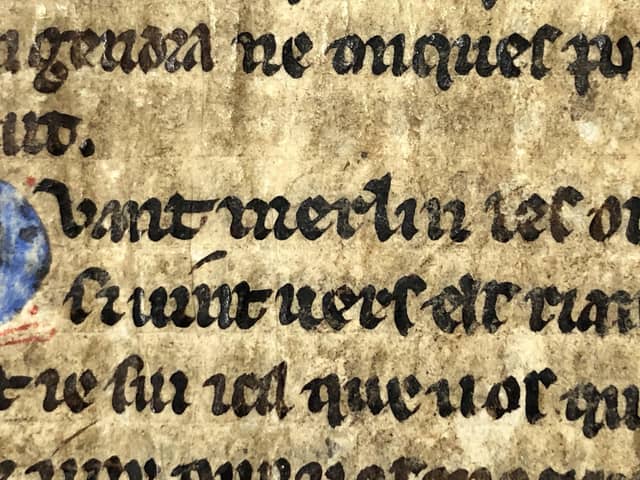 gendra ne onques pu
ut.
Quant merlin les oi
si uint uers els rian
t ie sui icil que uos qu